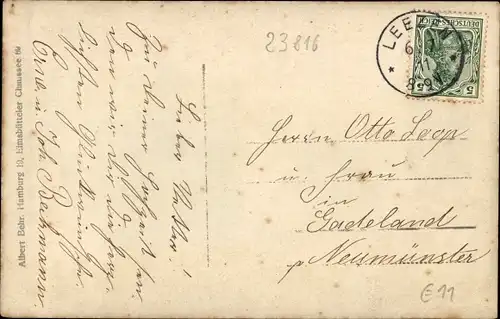 23816
LEE
DEUTSCHES REICH
5 5
Albert Behr, Hamburg 19, Eimsbütteler Chaussee
Lieber Vetter!
Zu Deiner Hochzeit sen-
den wir Dir die herz-
lichsten Glückwünsche.
Erw. u. Joh. Bachmann
Herrn Otto Loop
u. Frau
in
Gadeland
p Neumünster
E 11